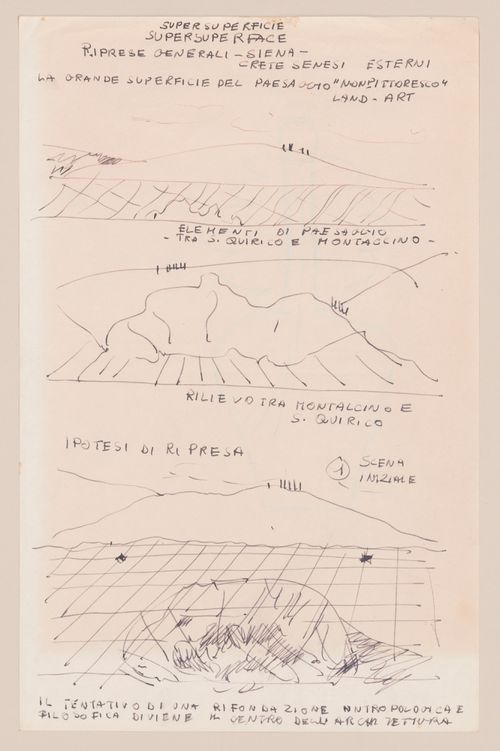 SUPERSUPERFICIE
SUPERSUPERFACE
RIPRESE GENERALI - SIENA -
CRETE SENESI ESTERNI
LA GRANDE SUPERFICIE DEL PAESAGGIO "NONPITTORESCO"
LAND - ART
ELEMENTI DI PAESAGGIO
- TRA S. QUIRICO E MONTALCINO -
RILIEVO TRA MONTALCINO E
S. QUIRICO
IPOTESI DI RIPRESA
1 SCENA
INIZIALE
IL TENTATIVO DI UNA RIFONDAZIONE ANTROPOLOGICA E
FILOSOFICA DIVIENE IL CENTRO DEGLI ARCHITETTURA